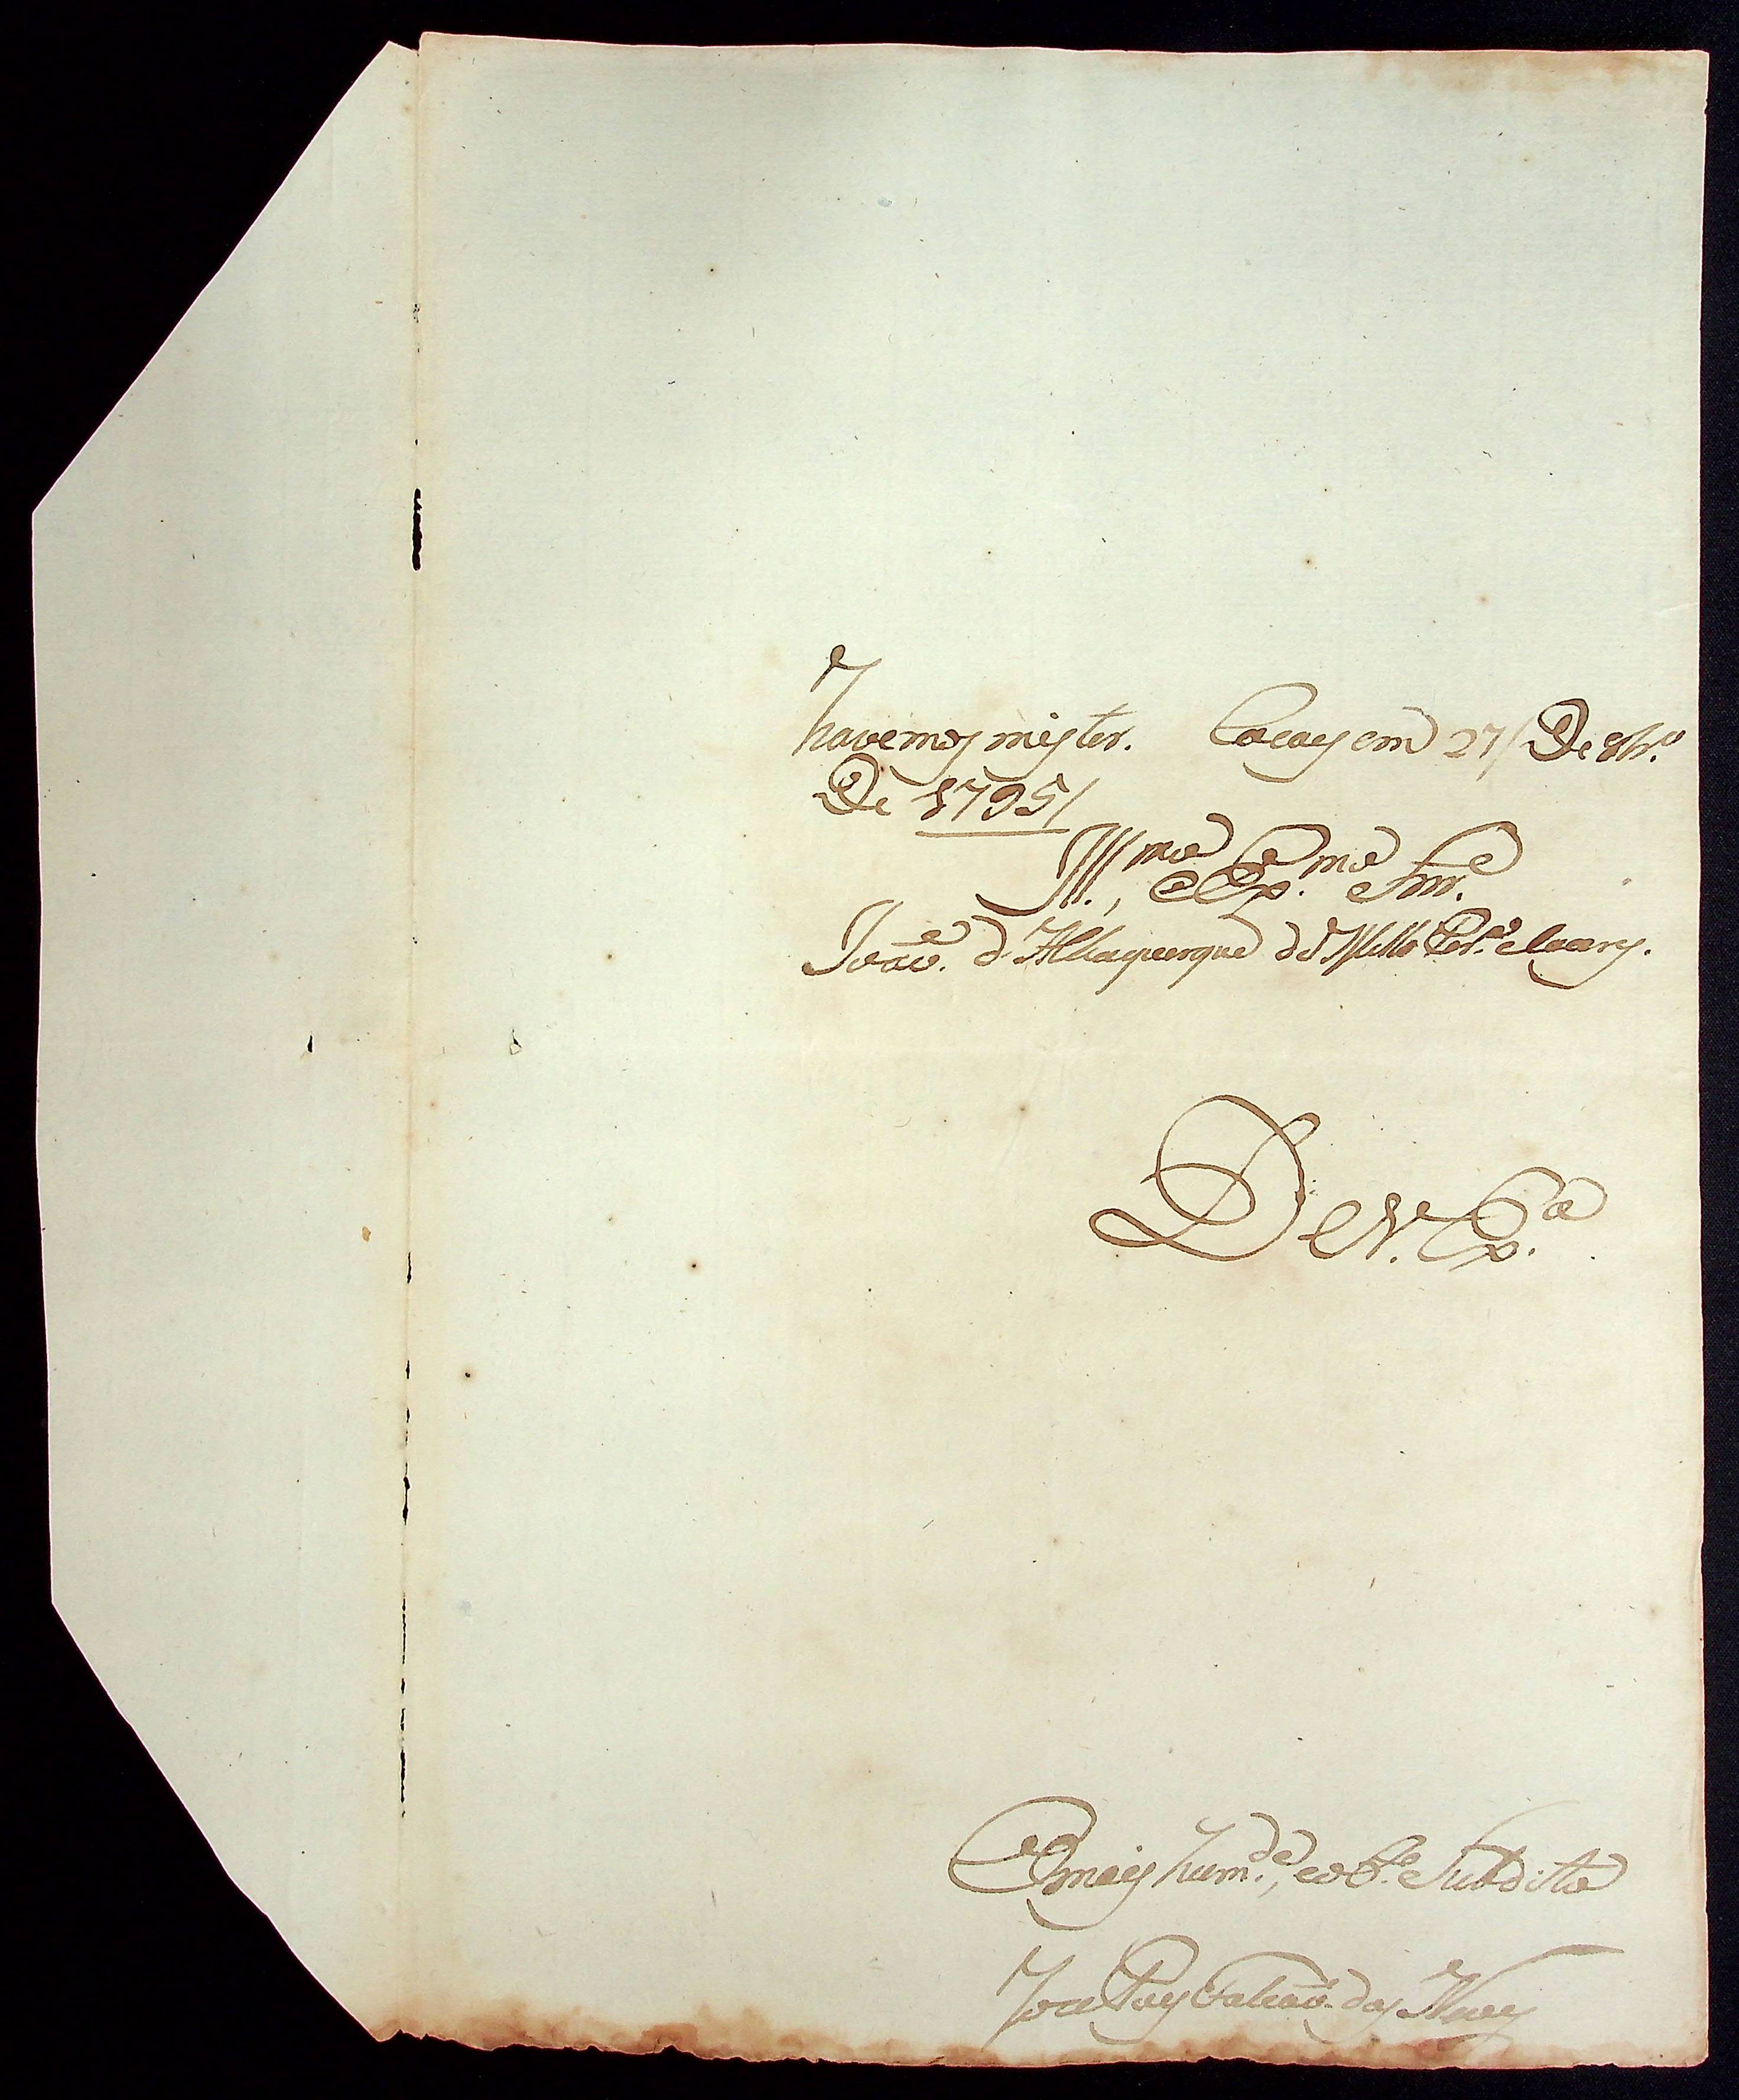 havemos mister. Cocaes em 27/ De 8br.º
De 1795/
Ill.mo, e Ex.mo Snr.e
João. d'Albuquerque de Mello Per.ª e Caceres.
De V. Ex.ª
O mais hum.de, e ob.e Subdito
Joze Paes Falcaõ das Neves